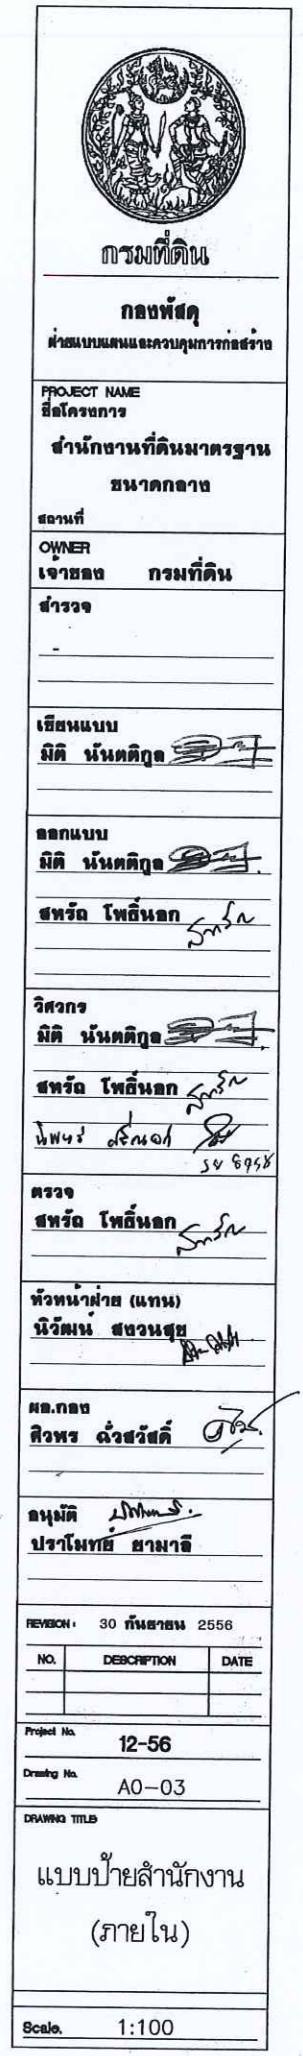 กรมที่ดิน
กองพัสดุ
ฝ่ายแบบแผนและควบคุมการก่อสร้าง
PROJECT NAME
ชื่อโครงการ
สำนักงานที่ดินมาตรฐาน
ขนาดกลาง
สถานที่
OWNER
เจ้าของ กรมที่ดิน
สำรวจ
-
เขียนแบบ
มิติ นันตติกูล
ออกแบบ
มิติ นันตติกูล
สหรัถ โพธิ์นอก
วิศวกร
มิติ นันตติกูล
สหรัถ โพธิ์นอก
ตรวจ
สหรัถ โพธิ์นอก
หัวหน้าฝ่าย (แทน)
นิวัฒน์ สงวนสุข
ผอ.กอง
ศิวพร ฉั่วสวัสดิ์
อนุมัติ
ปราโมทย์ ยามาลี
REVISION : 30 กันยายน 2556
NO. DESCRIPTION DATE
Project No.
12-56
Drawing No.
A0-03
DRAWING TITLE
แบบป้ายสำนักงาน
(ภายใน)
Scale. 1:100